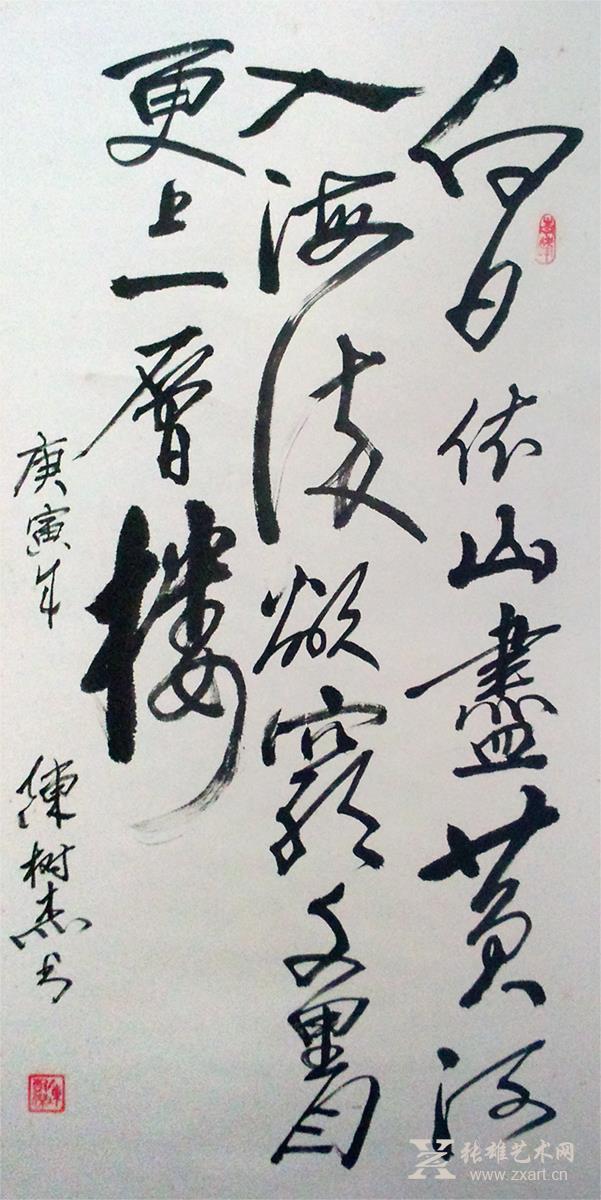 白日依山盡黄河
入海流欲窮千里目
更上一層樓
庚寅年
陳树杰书
张雄艺术网
www.zxart.cn